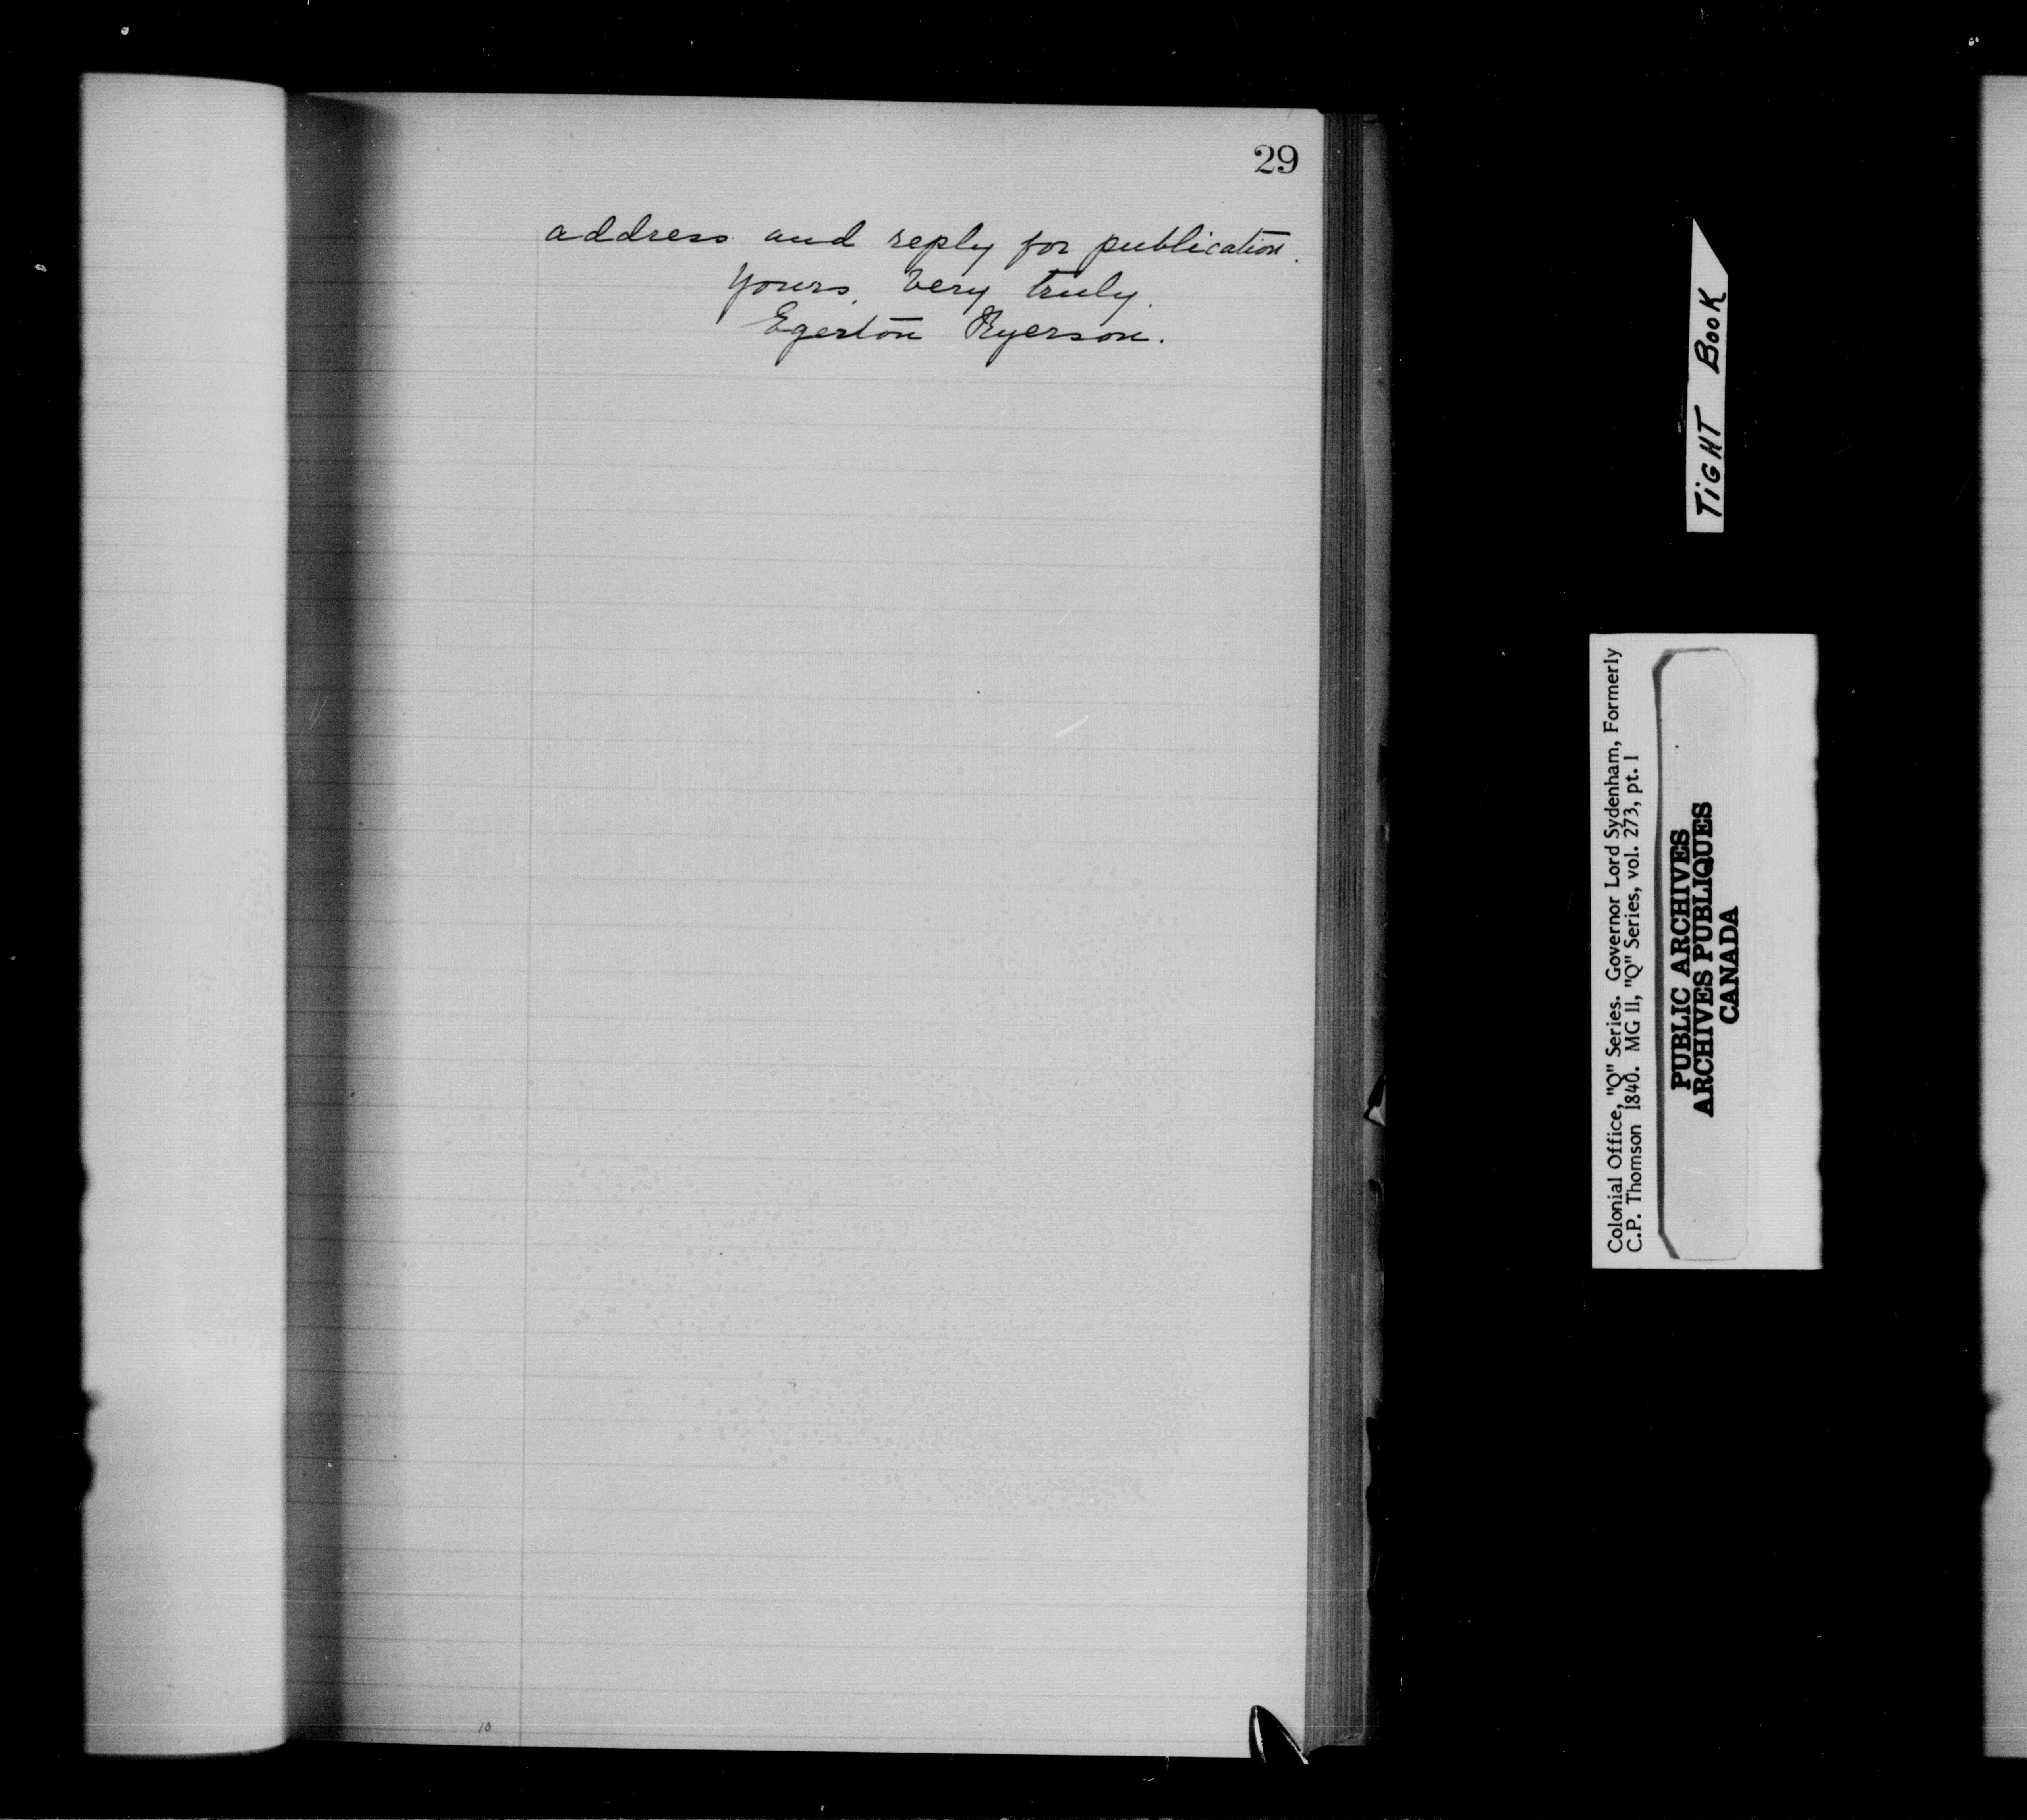 29
address and reply for publication.
Yours, Very truly.
Egerton Ryerson.
10
TIGHT BOOK
Colonial Office, "Q" Series. Governor Lord Sydenham, Formerly
C.P. Thomson 1840. MG 11, "Q" Series, vol. 273, pt. 1
PUBLIC ARCHIVES
ARCHIVES PUBLIQUES
CANADA